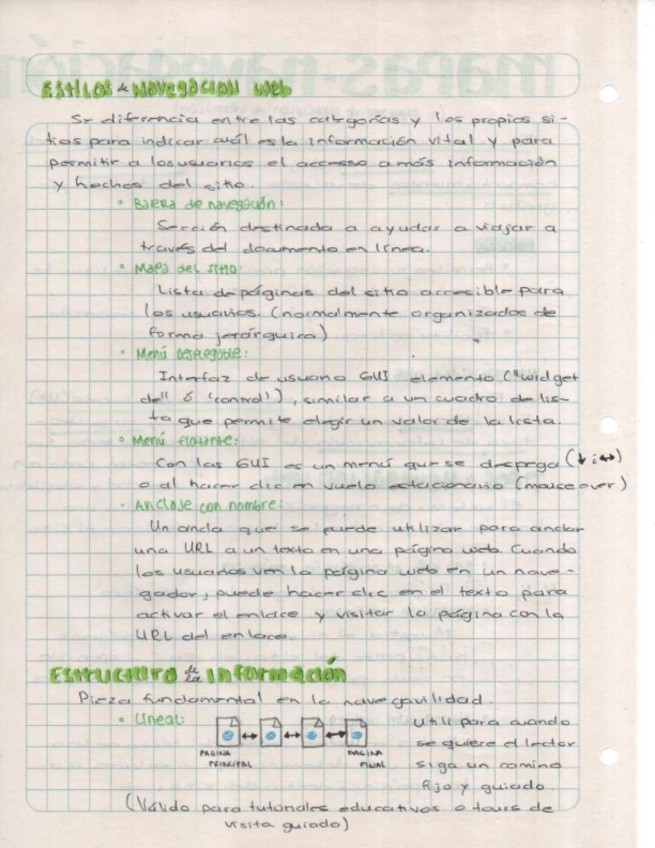 Estilos de Navegacion web
Se diferencia entre las categorías y los propios si-
tios para indicar cuál es la información vital y para
permitir a los usuarios el accesso a más información
y hechos del sitio.
• Barra de navegación:
Sección destinada a ayudar a viajar a
través del documento en línea.
• Mapa del sitio:
Lista de páginas del sitio accesible para
los usuarios. (normalmente organizados de
forma jerárquica)
• Menú Desplegable:
Interfaz de usuario GUI elemento ("widget
de" ó 'control'), similar a un cuadro de lis-
ta que permite elegir un valor de la lista.
• Menú flotante:
Con las GUI es un menú que se despega (↓ ; ↔)
o al hacer clic en vuelo estacionario (mouse over)
• Anclaje con nombre:
Un ancla que se puede utilizar para anclar
una URL a un texto en una página web. Cuando
los usuarios ven la página web en un nave-
gador, puede hacer clic en el texto para
activar el enlace y visitar la página con la
URL del enlace.
Estructura de la Información
Pieza fundamental en la navegavilidad.
• Lineal:
PAGINA PRINCIPAL
PAGINA FINAL
Util para cuando
se quiere el lector
siga un camino
fijo y guiado.
(Válido para tutoriales educativos o tours de
visita guiado)